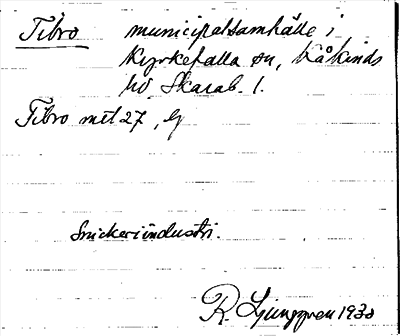 Tibro municipalsamhälle i
Kyrkefalla sn, Kåkinds
hd Skarab. l.
Tibro mst 27, Ej
Snickeriindustri.
R. Ljunggren 1930